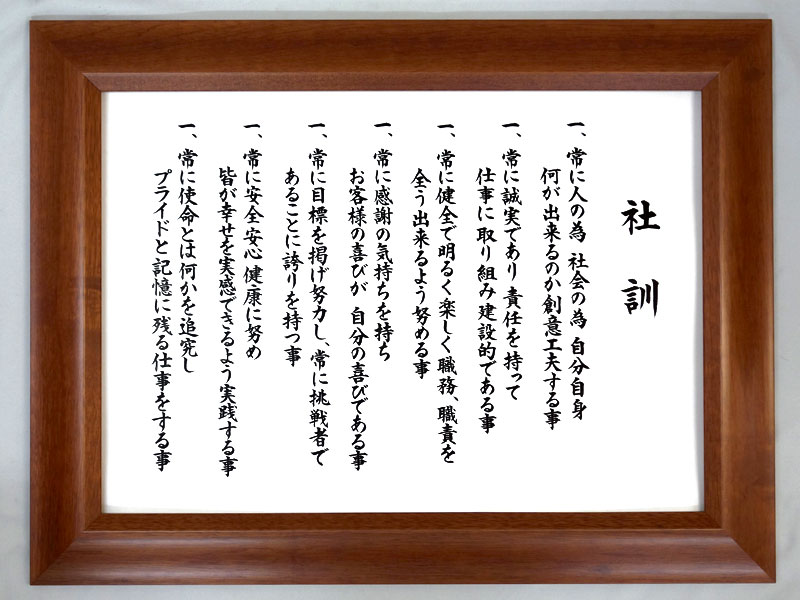 社訓
一、常に人の為 社会の為 自分自身
何が出来るのか創意工夫する事
一、常に誠実であり 責任を持って
仕事に 取り組み建設的である事
一、常に健全で明るく楽しく 職務、職責を
全う出来るよう努める事
一、常に感謝の気持ちを持ち
お客様の喜びが 自分の喜びである事
一、常に目標を掲げ努力し、常に挑戦者で
あることに誇りを持つ事
一、常に安全安心 健康に努め
皆が幸せを実感できるよう実践する事
一、常に使命とは何かを追究し
プライドと記憶に残る仕事をする事